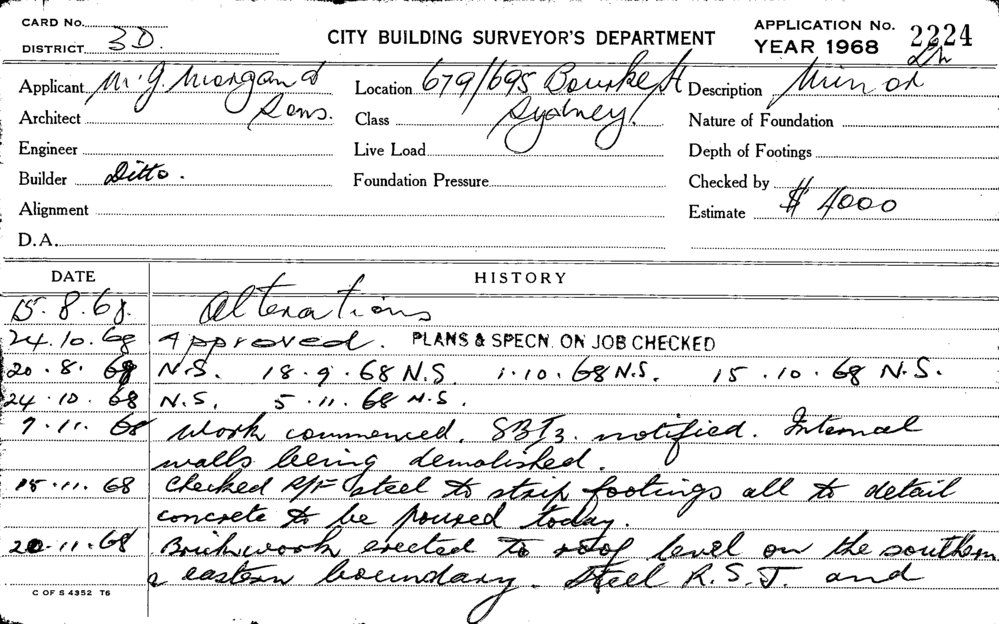 CARD No.
DISTRICT 3D.
CITY BUILDING SURVEYOR'S DEPARTMENT
APPLICATION No. 2224
YEAR 1968
Applicant M. J. Morgan &
Sons.
Architect
Engineer
Builder Ditto.
Alignment
D.A.
Location 679/695 Bourke St
Sydney.
Class
Live Load
Foundation Pressure
Description Minor
Nature of Foundation
Depth of Footings
Checked by
Estimate $ 4000
DATE HISTORY
15.8.68. Alterations
24.10.68 Approved. PLANS & SPECN. ON JOB CHECKED
20.8.68 N.S. 18.9.68 N.S. 1.10.68 N.S. 15.10.68 N.S.
24.10.68 N.S. 5.11.68 N.S.
7.11.68 Work commenced. SBI3. notified. Internal
walls being demolished.
15.11.68 Checked R/F steel to strip footings all to detail
concrete to be poured today.
20.11.68 Brickwork erected to roof level on the southern
& eastern boundary. Steel R.S.J. and
C OF S 4352 T6